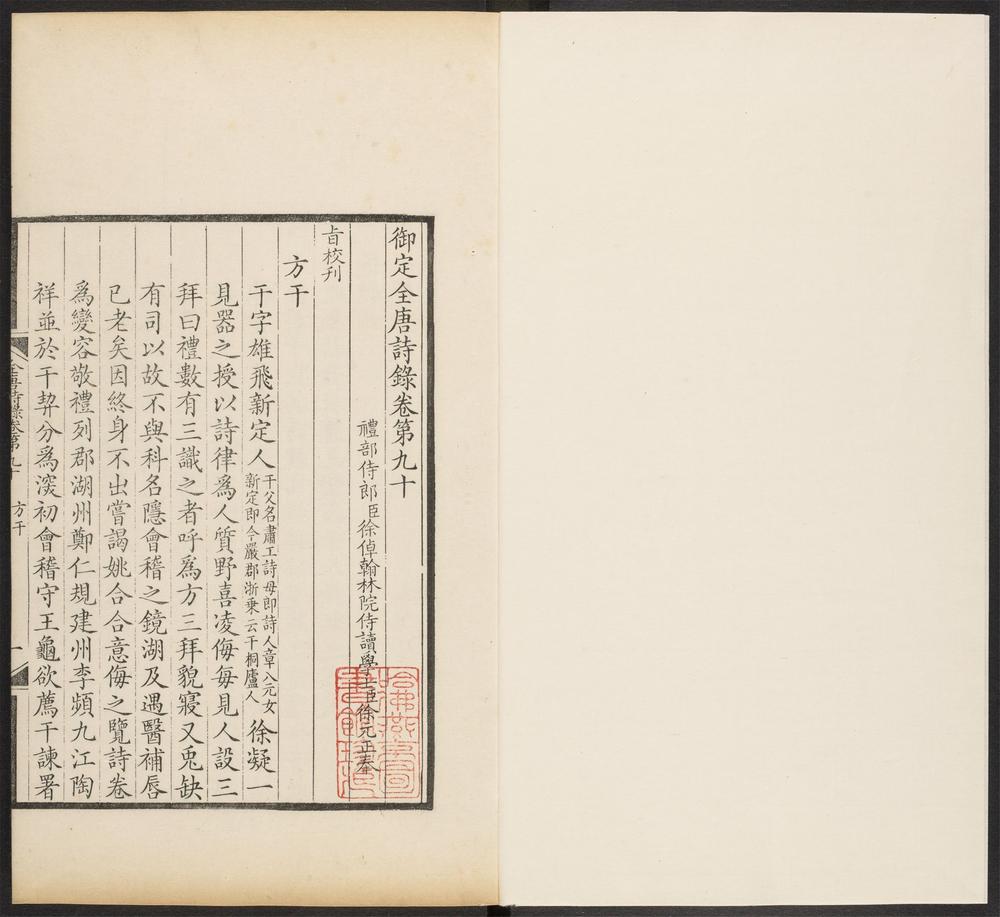 御定全唐詩錄卷第九十
禮部侍郎臣徐倬翰林院侍讀學士臣徐元正奉
旨校刊
方干
干字雄飛新定人干父名肅工詩母即詩人章八元女新定即今嚴郡浙乗云干桐廬人徐凝一
見器之授以詩律爲人質野喜凌侮每見人設三
拜曰禮數有三識之者呼爲方三拜貌寢又兎缺
有司以故不與科名隱會稽之鏡湖及遇醫補唇
已老矣因終身不出嘗謁姚合合意侮之覽詩卷
爲變容敬禮列郡湖州鄭仁規建州李頻九江陶
祥並於干契分爲深初會稽守王龜欲薦干諫署
全唐詩錄卷第九十
方干
一
哈佛燕京
圖書館珍